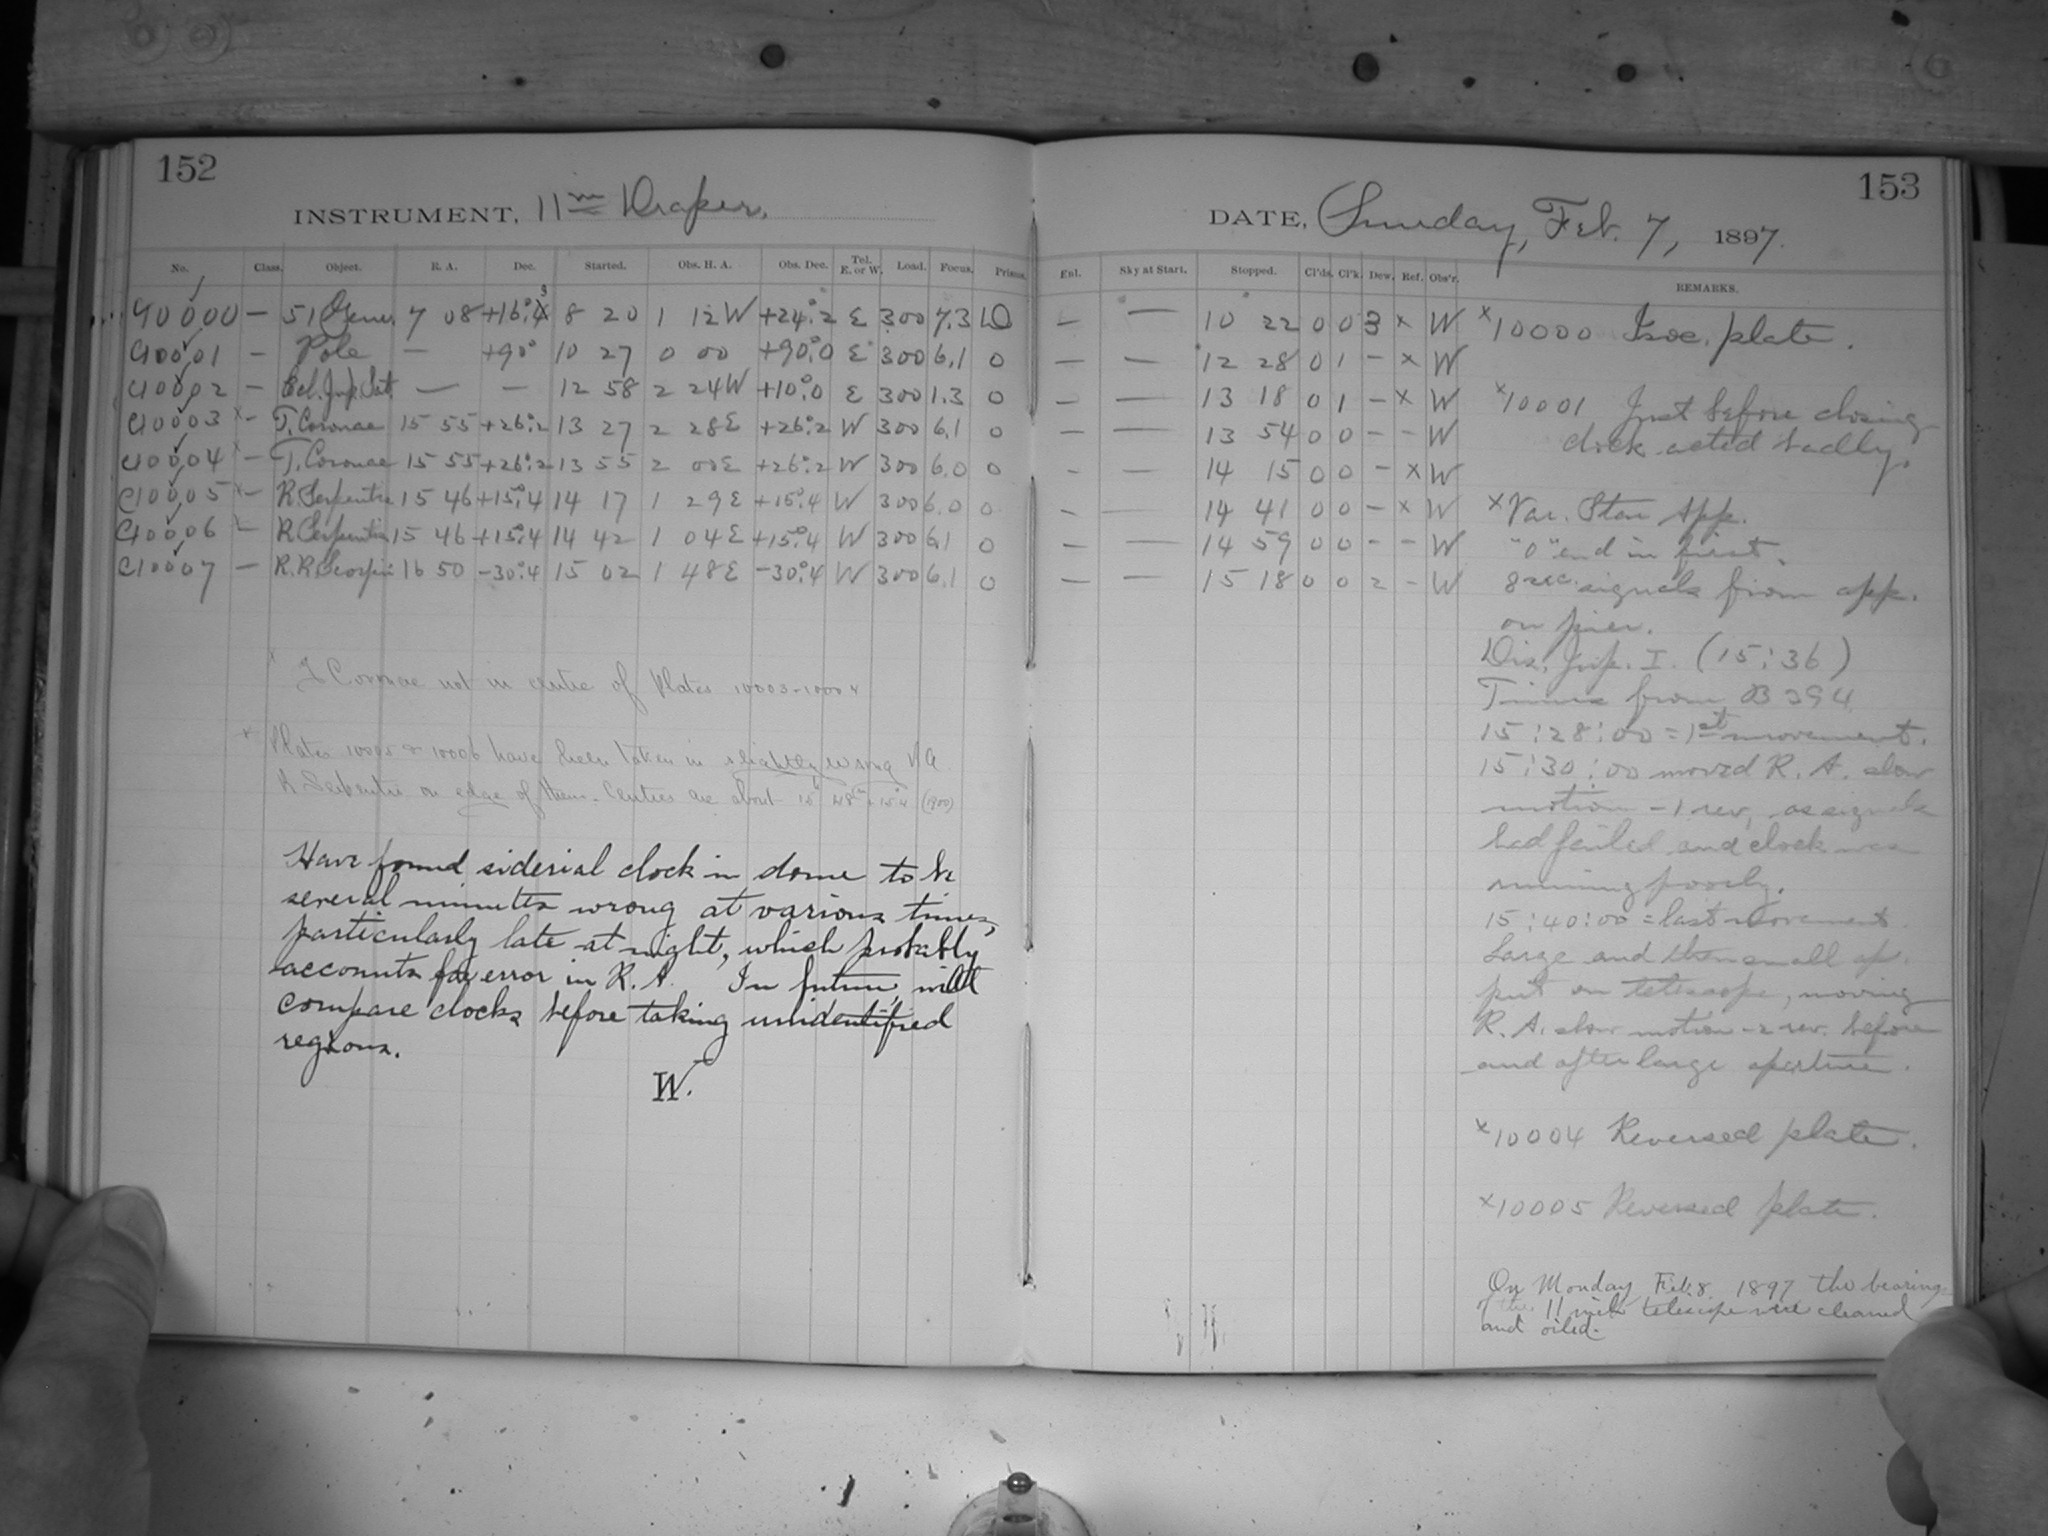 152
INSTRUMENT, 11 in Draper.
No. Class. Object. R. A. Dec. Started. Obs. H. A. Obs. Dec. Tel. E. or W. Load. Focus. Prisms.
C10000 — 51 Gem. 7 08 +16°.3 8 20 1 12 W +24°.2 E 300 7.3 D
C10001 — Pole — +90° 10 27 0 00 +90°.0 E 300 6.1 0
C10002 — Ecl. Jup. Sat. — — 12 58 2 24 W +10°.0 E 300 1.3 0
C10003 x — T. Coronae 15 55 +26°.2 13 27 2 28 E +26°.2 W 300 6.1 0
C10004 x — T. Coronae 15 55 +26°.2 13 55 2 00 E +26°.2 W 300 6.0 0
C10005 x — R. Serpentis 15 46 +15°.4 14 17 1 29 E +15°.4 W 300 6.0 0
C10006 — R. Serpentis 15 46 +15°.4 14 42 1 04 E +15°.4 W 300 6.1 0
C10007 — R. R. Scorpii 16 50 -30°.4 15 02 1 48 E -30°.4 W 300 6.1 0
x T Coronae not in centre of Plates 10003-10004
x Plates 10005 & 10006 have been taken in slightly wrong RA
R Serpentis on edge of them. Centres are about 15h 48m +15°.4 (1900)
Have found siderial clock in dome to be
several minutes wrong at various times,
particularly late at night, which probably
accounts for error in R. A. In future will
compare clocks before taking unidentified
regions.
W.
153
DATE, Sunday, Feb. 7, 1897.
Enl. Sky at Start. Stopped. Cl'ds. Cl'k. Dew. Ref. Obs'r. REMARKS.
— — 10 22 0 0 3 x W
— — 12 28 0 1 — x W
— — 13 18 0 1 — x W
— — 13 54 0 0 — — W
— — 14 15 0 0 — x W
— — 14 41 0 0 — x W
— — 14 59 0 0 — — W
— — 15 18 0 0 2 — W
x 10000 Isoc. plate.
x 10001 Just before closing
clock acted badly.
x Var. Star App.
"0" end in first.
8 sec. signals from app.
on pier.
Dis. Jup. I. (15:36)
Times from B 394
15:28:00 = 1st movement.
15:30:00 moved R. A. slow
motion -1 rev, as signals
had failed and clock was
running poorly.
15:40:00 = last movement.
Large and then small ap.
put on telescope, moving
R. A. slow motion -2 rev. before
and after large aperture.
x 10004 Reversed plate.
x 10005 Reversed plate.
On Monday Feb. 8. 1897 the bearing
of the 11 inch telescope were cleaned
and oiled.